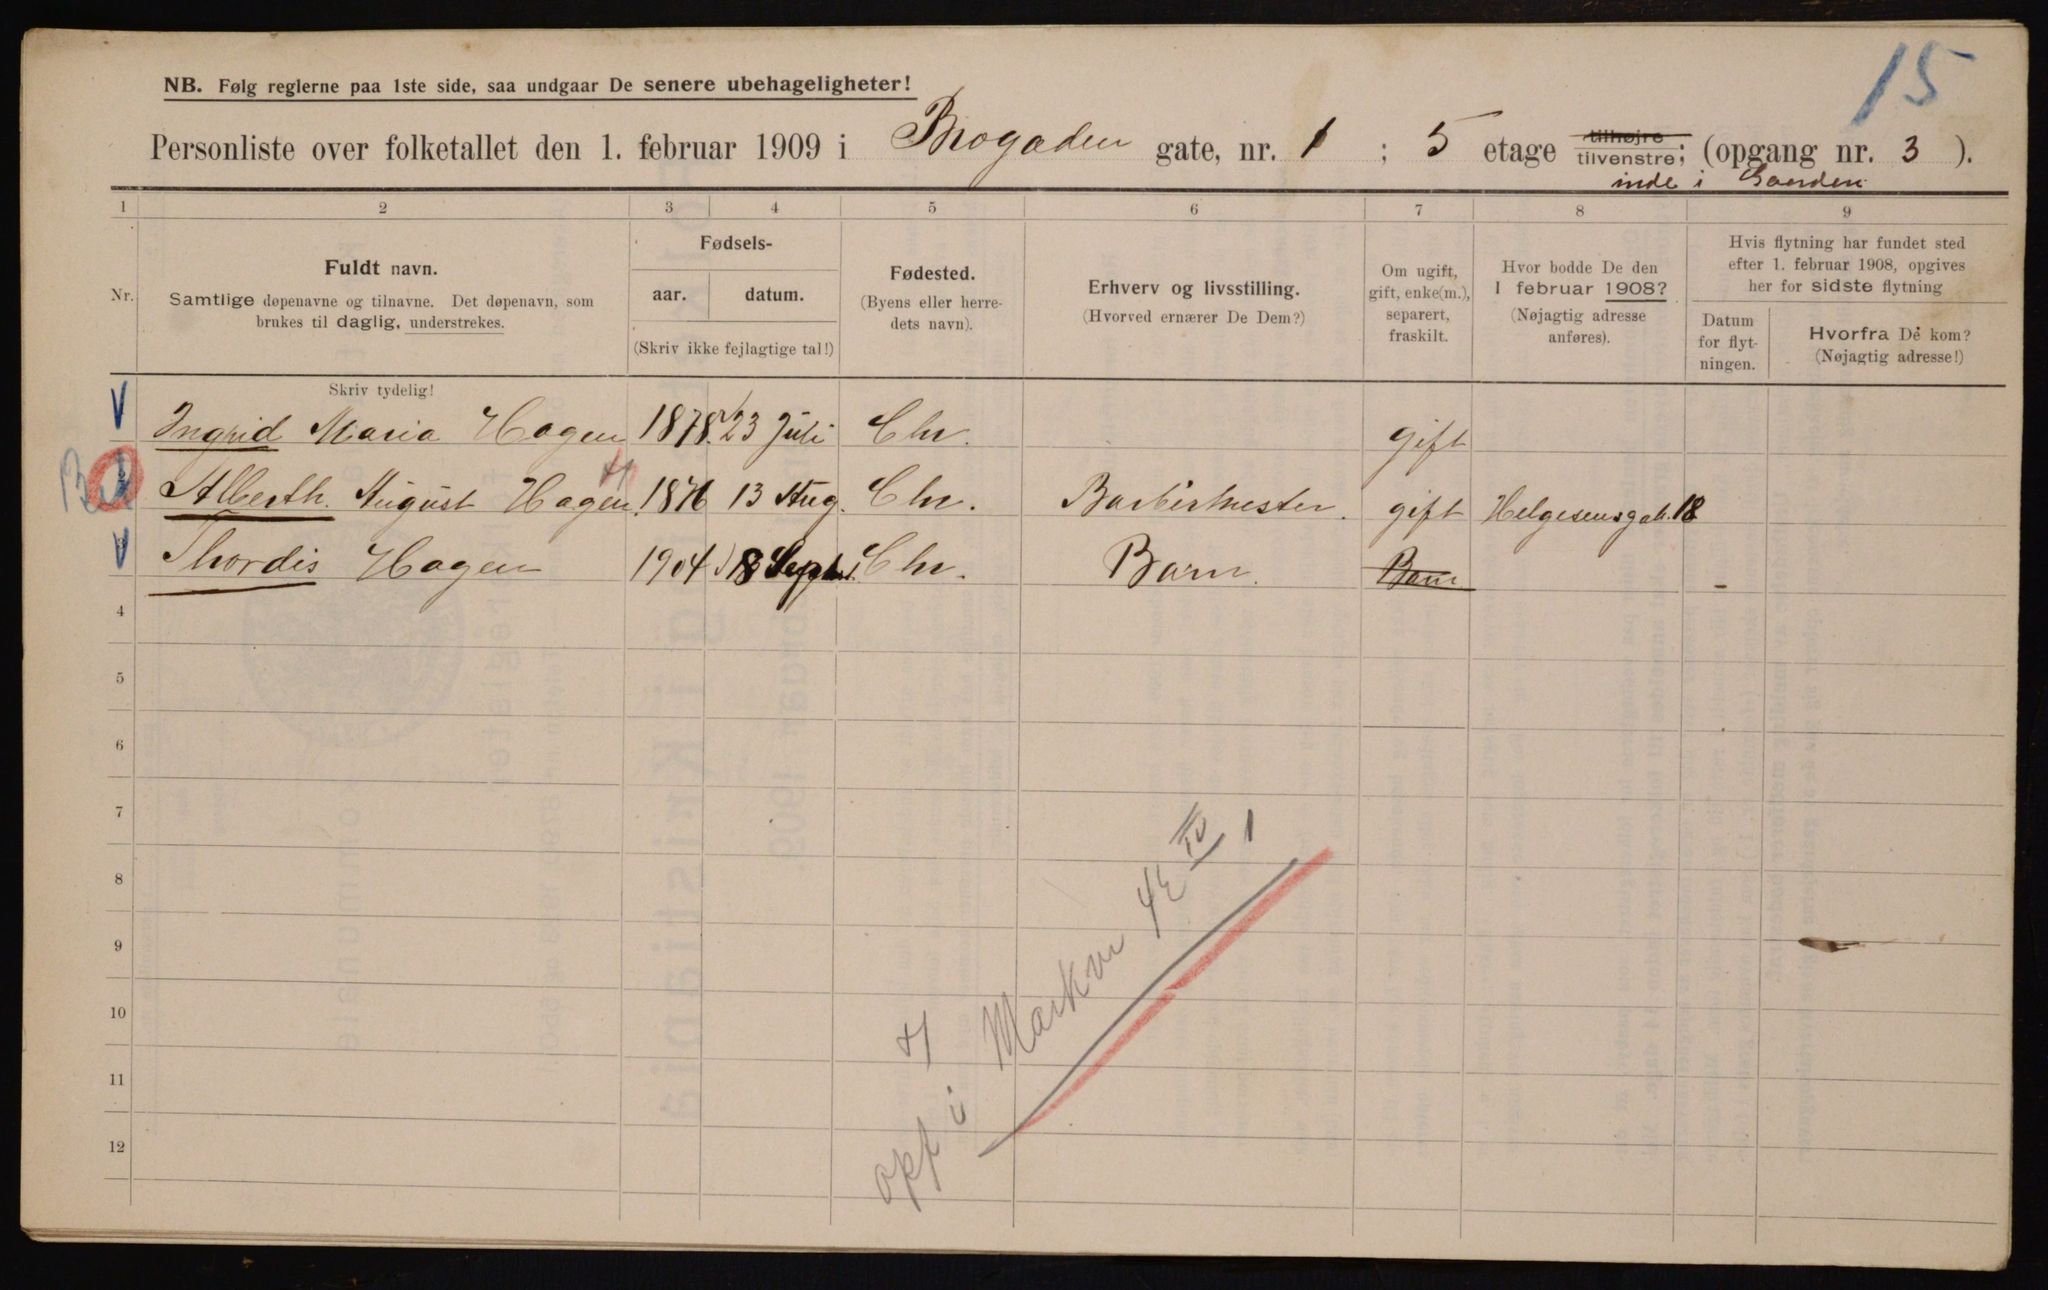 15
NB. Følg reglerne paa 1ste side, saa undgaar De senere ubehageligheter!
Personliste over folketallet den 1. februar 1909 i Brogaden gate, nr. 1 ; 5 etage tilhøjre tilvenstre; (opgang nr. 3 ).
inde i Gaarden
1 2 3 4 5 6 7 8 9
Nr.
Fuldt navn.
Samtlige døpenavne og tilnavne. Det døpenavn, som
brukes til daglig, understrekes.
Skriv tydelig!
Fødsels-
aar. datum.
(Skriv ikke fejlagtige tal!)
Fødested.
(Byens eller herre-
dets navn).
Erhverv og livsstilling.
(Hvorved ernærer De Dem?)
Om ugift,
gift, enke(m.),
separert,
fraskilt.
Hvor bodde De den
1 februar 1908?
(Nøjagtig adresse
anføres).
Hvis flytning har fundet sted
efter 1. februar 1908, opgives
her for sidste flytning
Datum
for flyt-
ningen.
Hvorfra De kom?
(Nøjagtig adresse!)
Ingrid Maria Hagen 1878 23 Juli Chr. gift
Alberth. August Hagen 1876 13 Aug. Chr. Barbermester. gift Helgesensgate. 18
Thordis Hagen 1904 18 Sept. Chr. Barn. Barn
4
5
6
7
8
9
10
11
12
opf i Markvn 42 IV 1